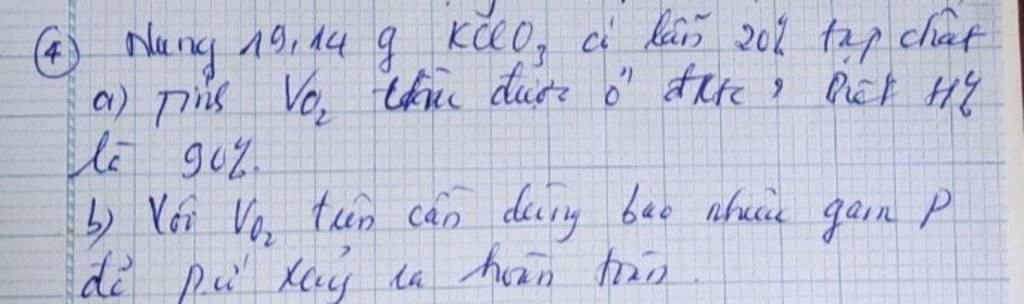 ④ Nung 19,14 g KClO₃ có lẫn 20% tạp chất
a) Tính V_O₂ thu được ở đktc, biết H%
là 90%.
b) Với V_O₂ trên cần dùng bao nhiêu gam P
để pứ xảy ra hoàn toàn.